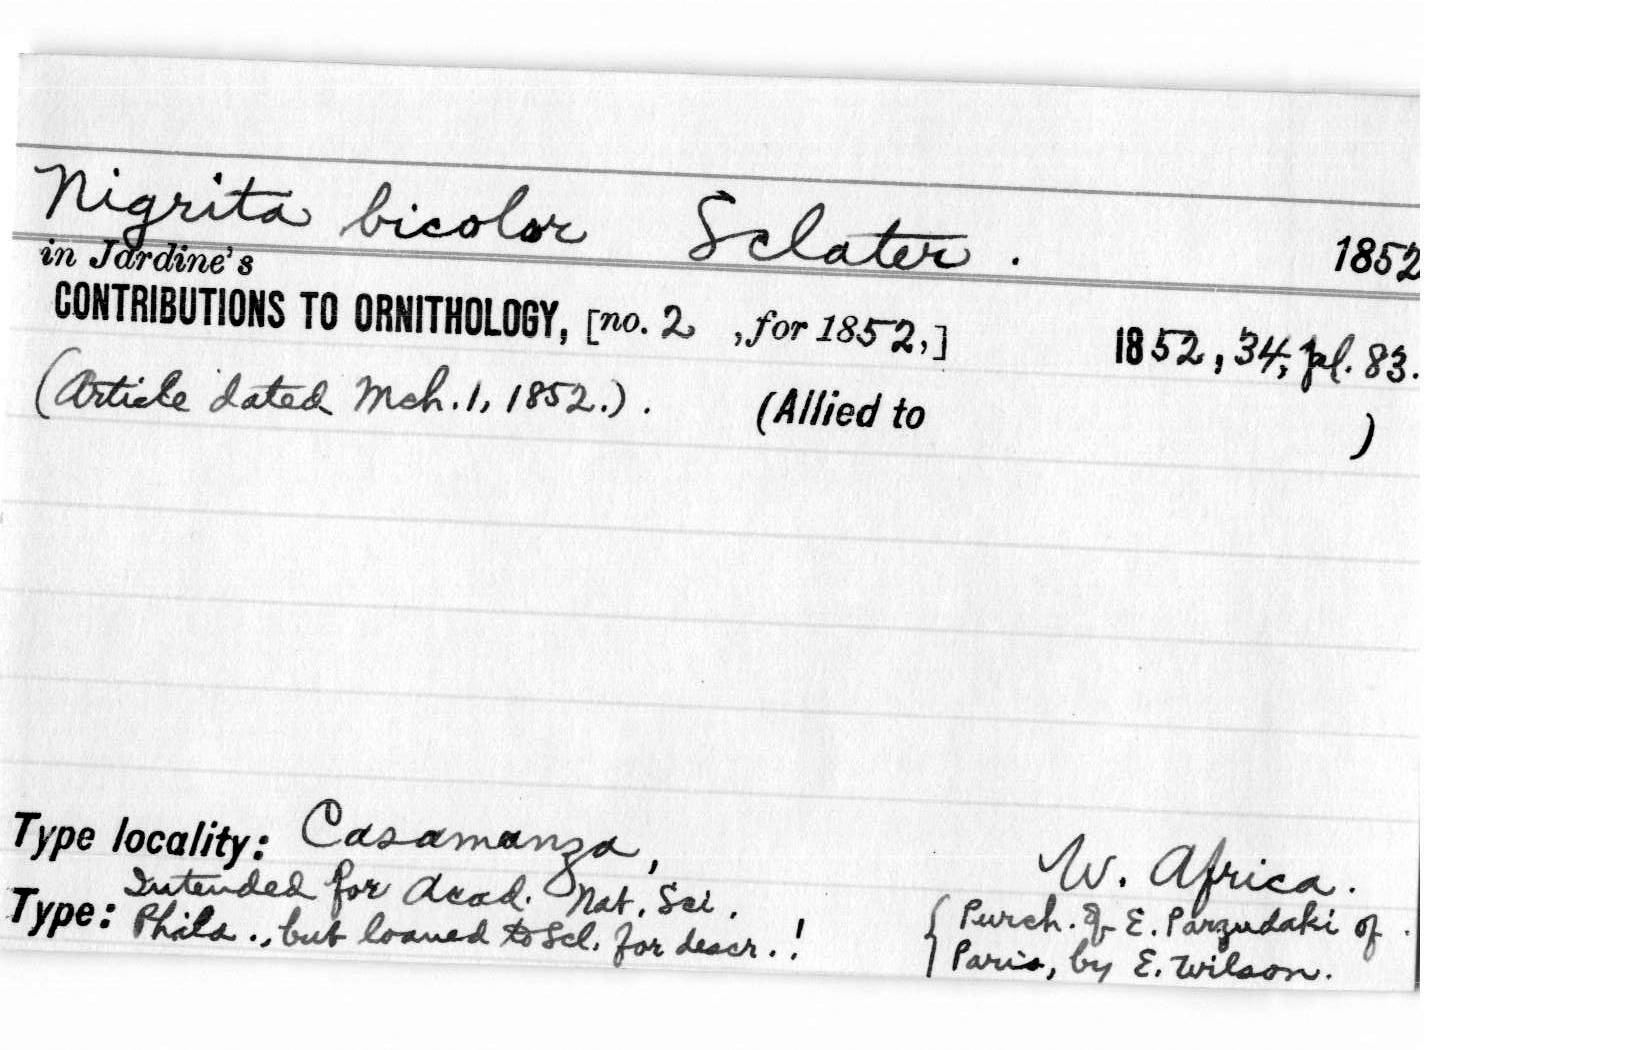 Nigrita bicolor Sclater. 1852
in Jardine's
CONTRIBUTIONS TO ORNITHOLOGY, [no. 2 , for 1852,] 1852, 34, pl. 83.
(Article dated Mch. 1, 1852.). (Allied to )
Type locality: Casamanza, W. Africa.
Type: Intended for Acad. Nat. Sci.
Phila., but loaned to Scl. for descr..!
{ Purch. of E. Parzudaki of
Paris, by E. Wilson.